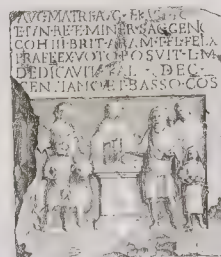 AVG MATRI AVG
ET IVN RE ET MINER SAC GEN
COH III BRIT ARA M T FL FEL
PRAEF EX VOTO POSVIT L M
DEDICAVIT DEC
GENTIANO ET BASSO COS